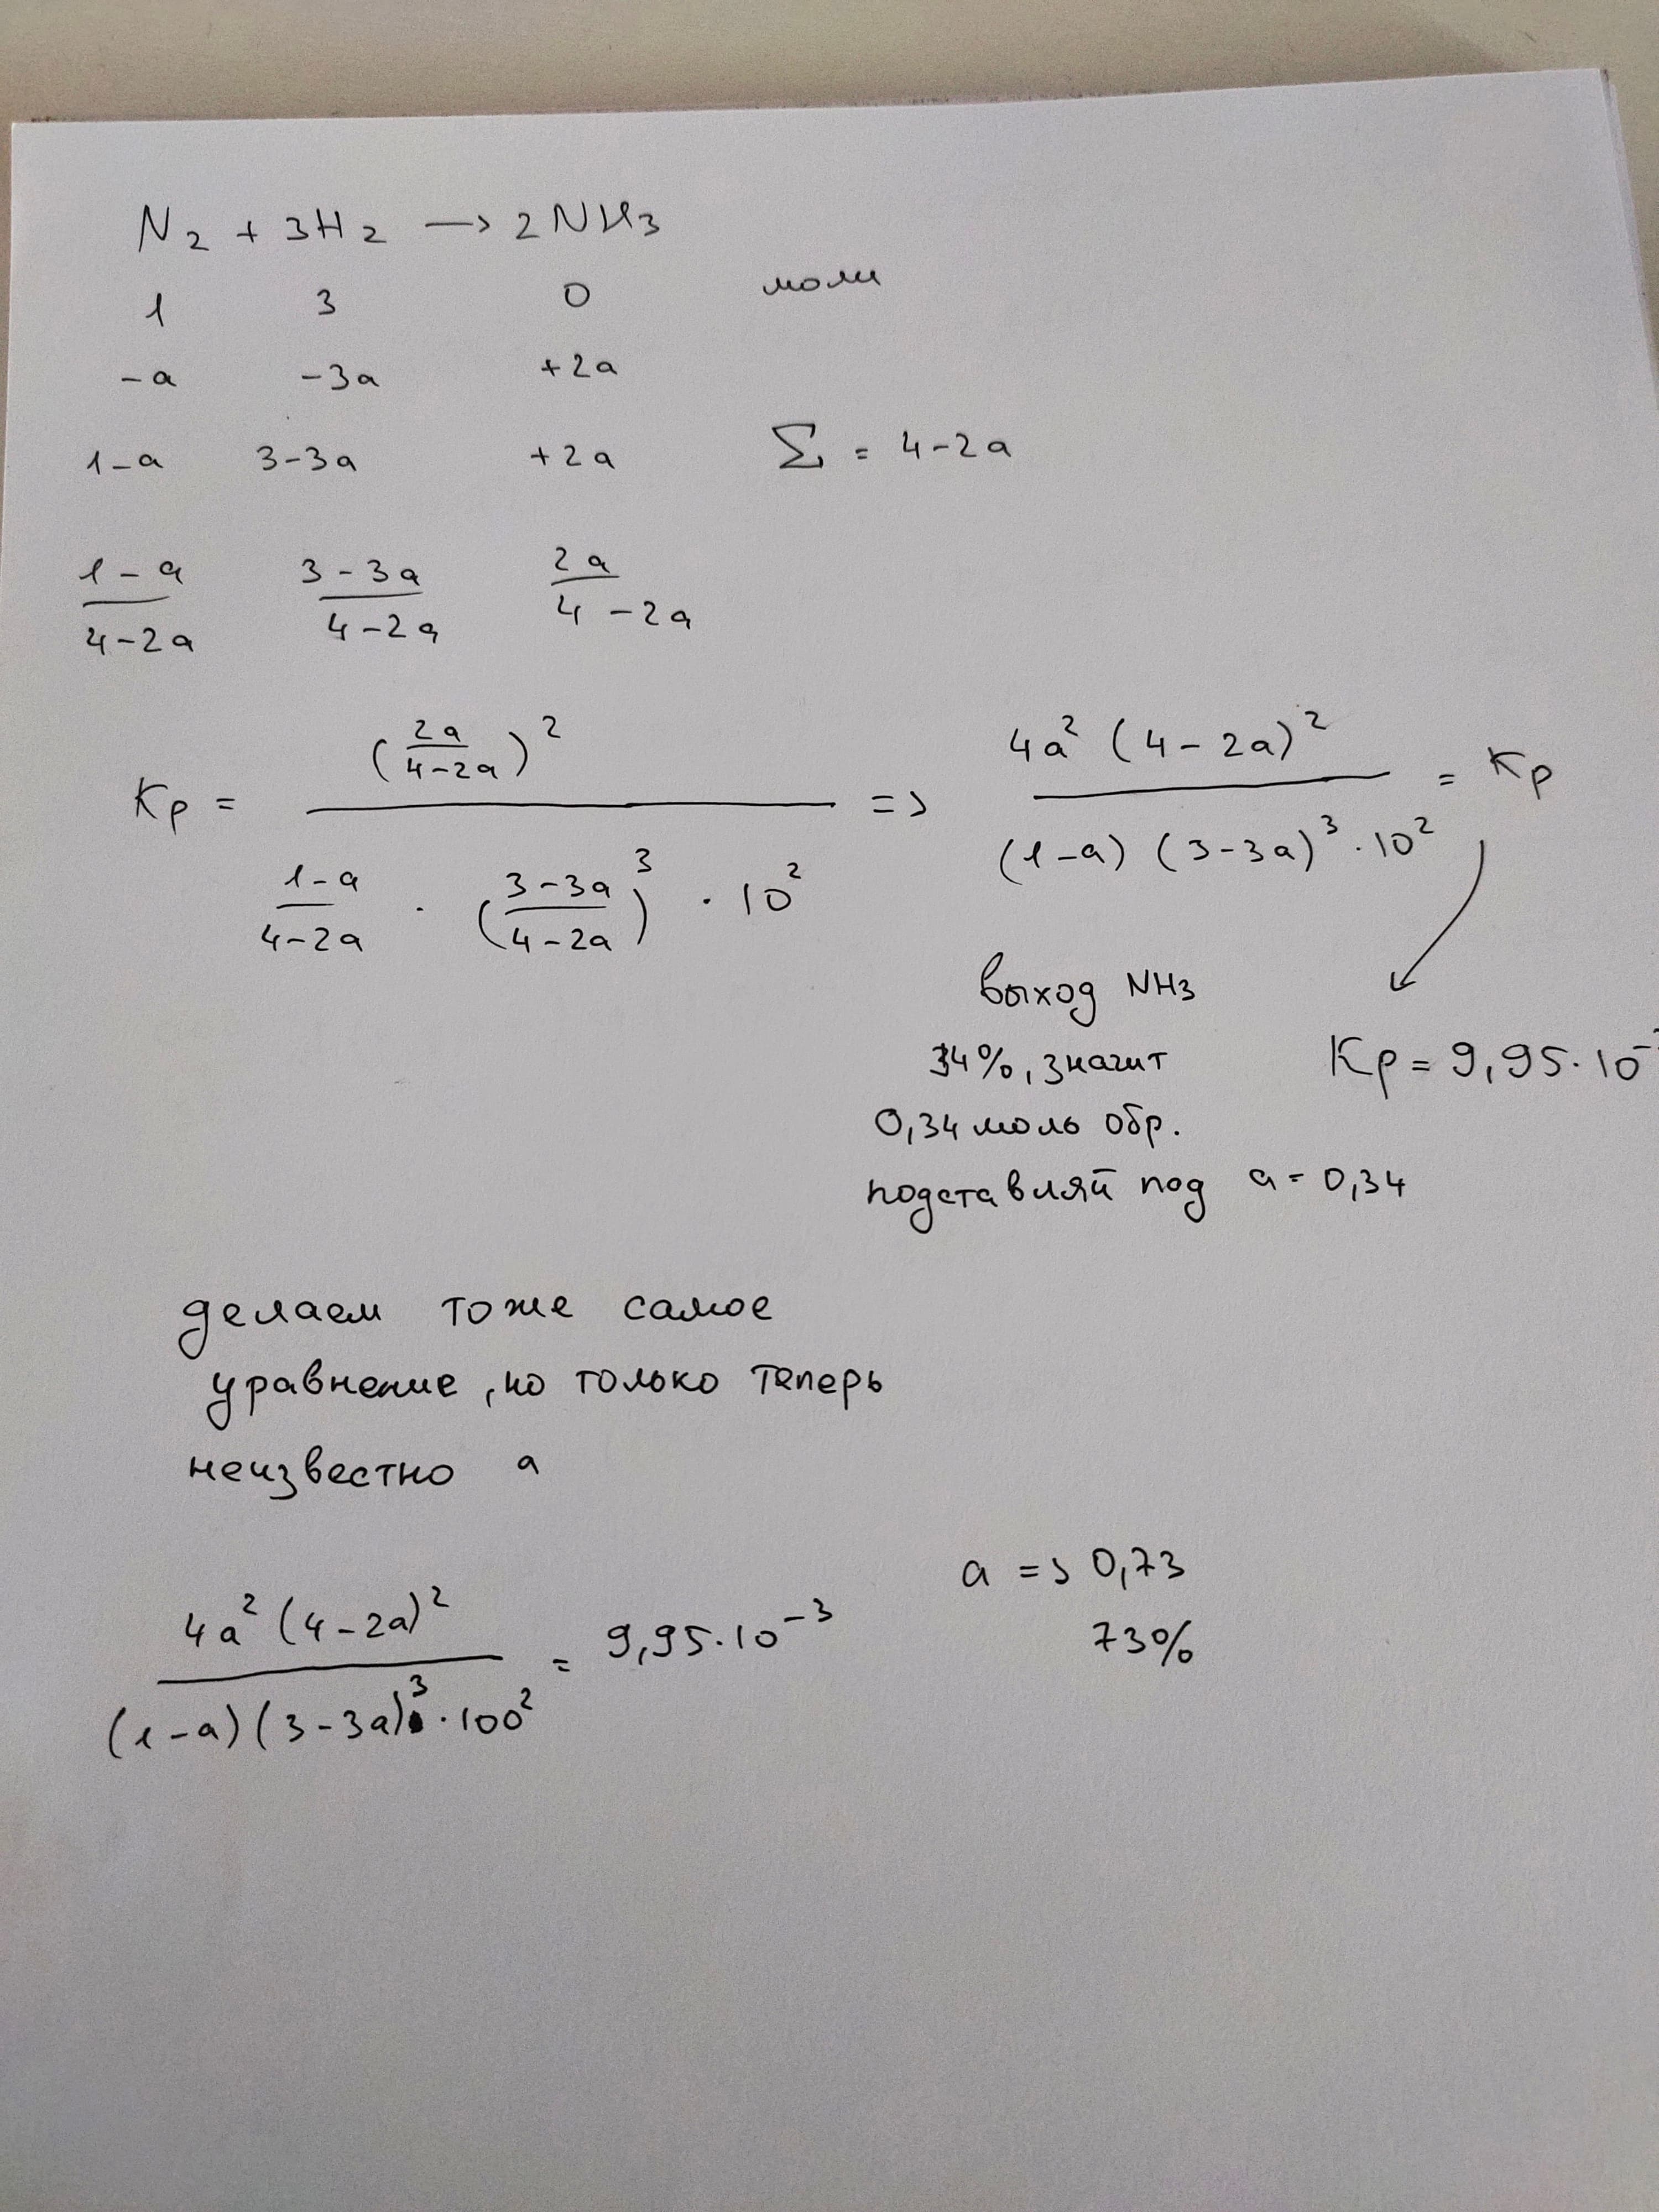 N₂ + 3H₂ → 2NH₃
1 3 0 моли
-a -3a +2a
1-a 3-3a +2a Σ = 4-2a
(1-a)/(4-2a) (3-3a)/(4-2a) 2a/(4-2a)
Kp = (2a/(4-2a))² / ((1-a)/(4-2a) · ((3-3a)/(4-2a))³ · 10²) => 4a² (4-2a)² / ((1-a) (3-3a)³ · 10²) = Kp
выход NH₃
34%, значит
Kp = 9,95 · 10
0,34 моль обр.
подставляй под a = 0,34
делаем тоже самое
уравнение, но только теперь
неизвестно a
4a² (4-2a)² / ((1-a)(3-3a)³ · 100²) = 9,95 · 10⁻³
a => 0,73
73%